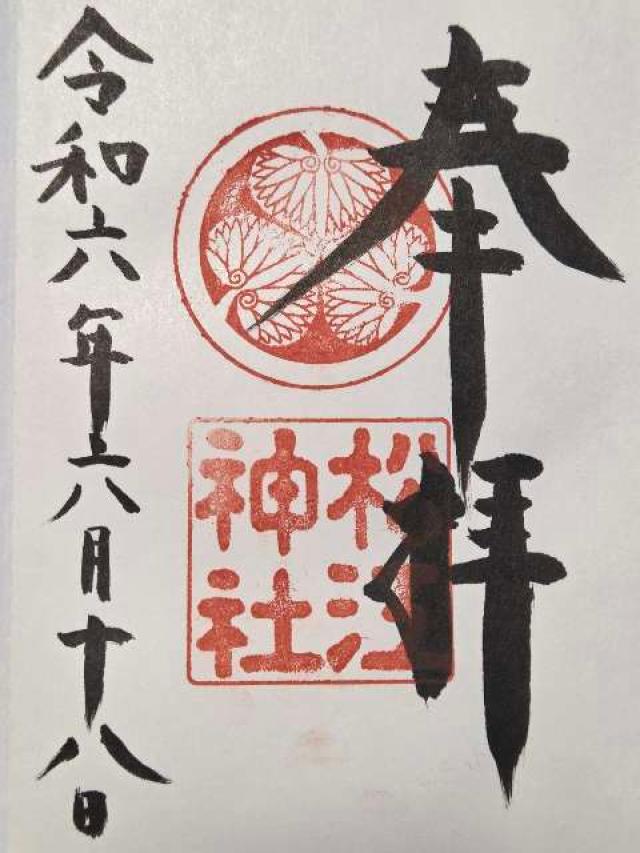 奉拝
松江
神社
令和六年六月十八日